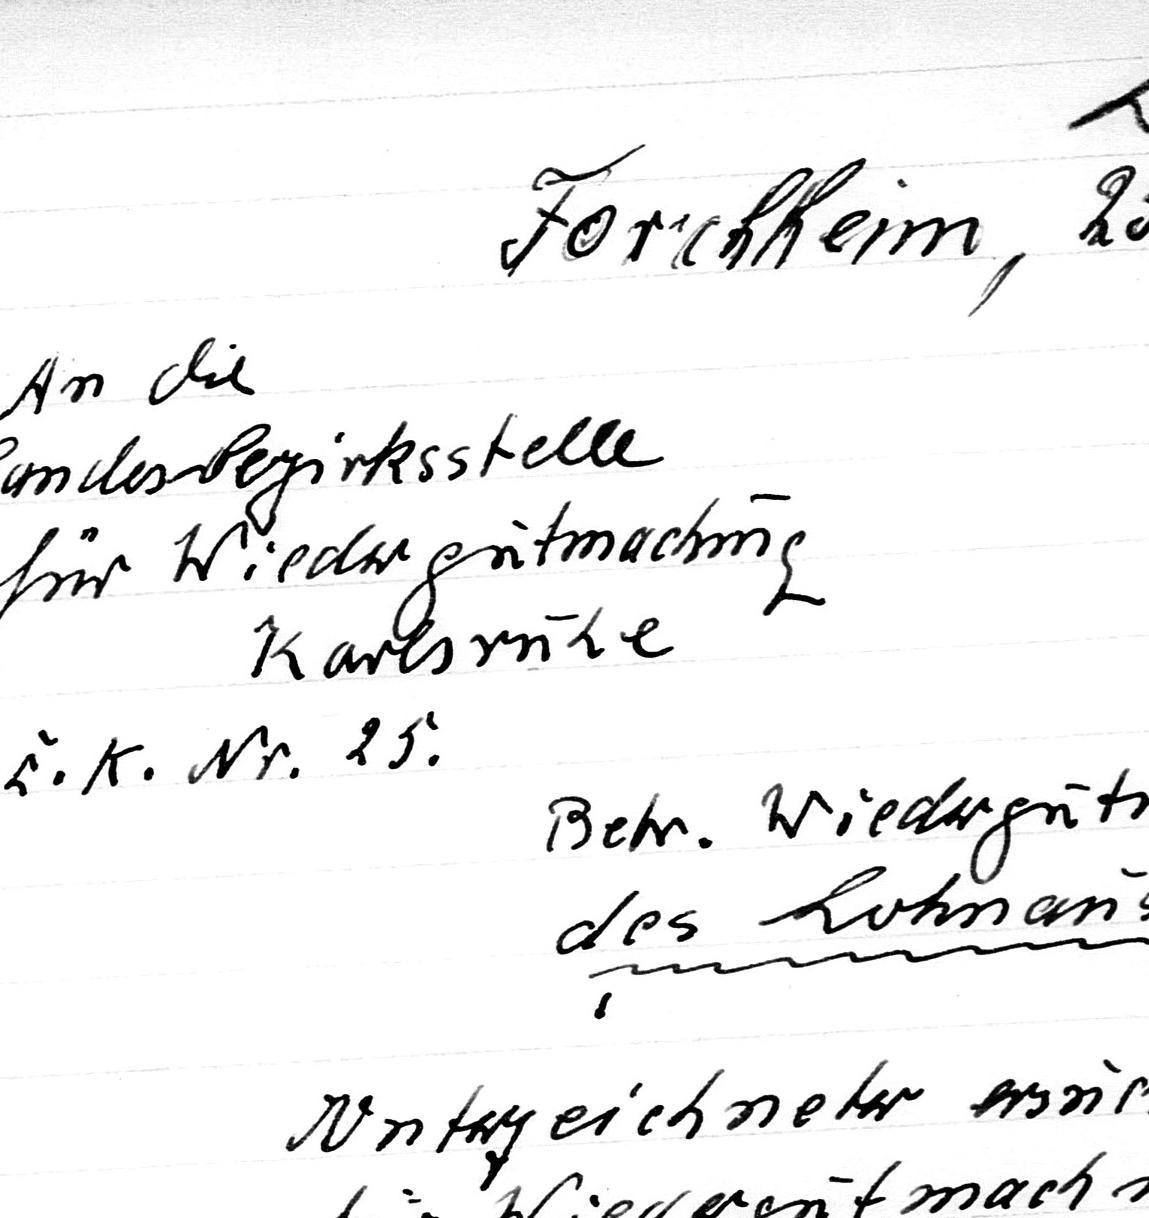 Forchheim, 23
An die
Landesbezirksstelle
für Wiedergutmachung
Karlsruhe
E. K. Nr. 25.
Betr. Wiedergutm
des Lohnaus
Unterzeichneter ersuch
die Wiedergutmachu